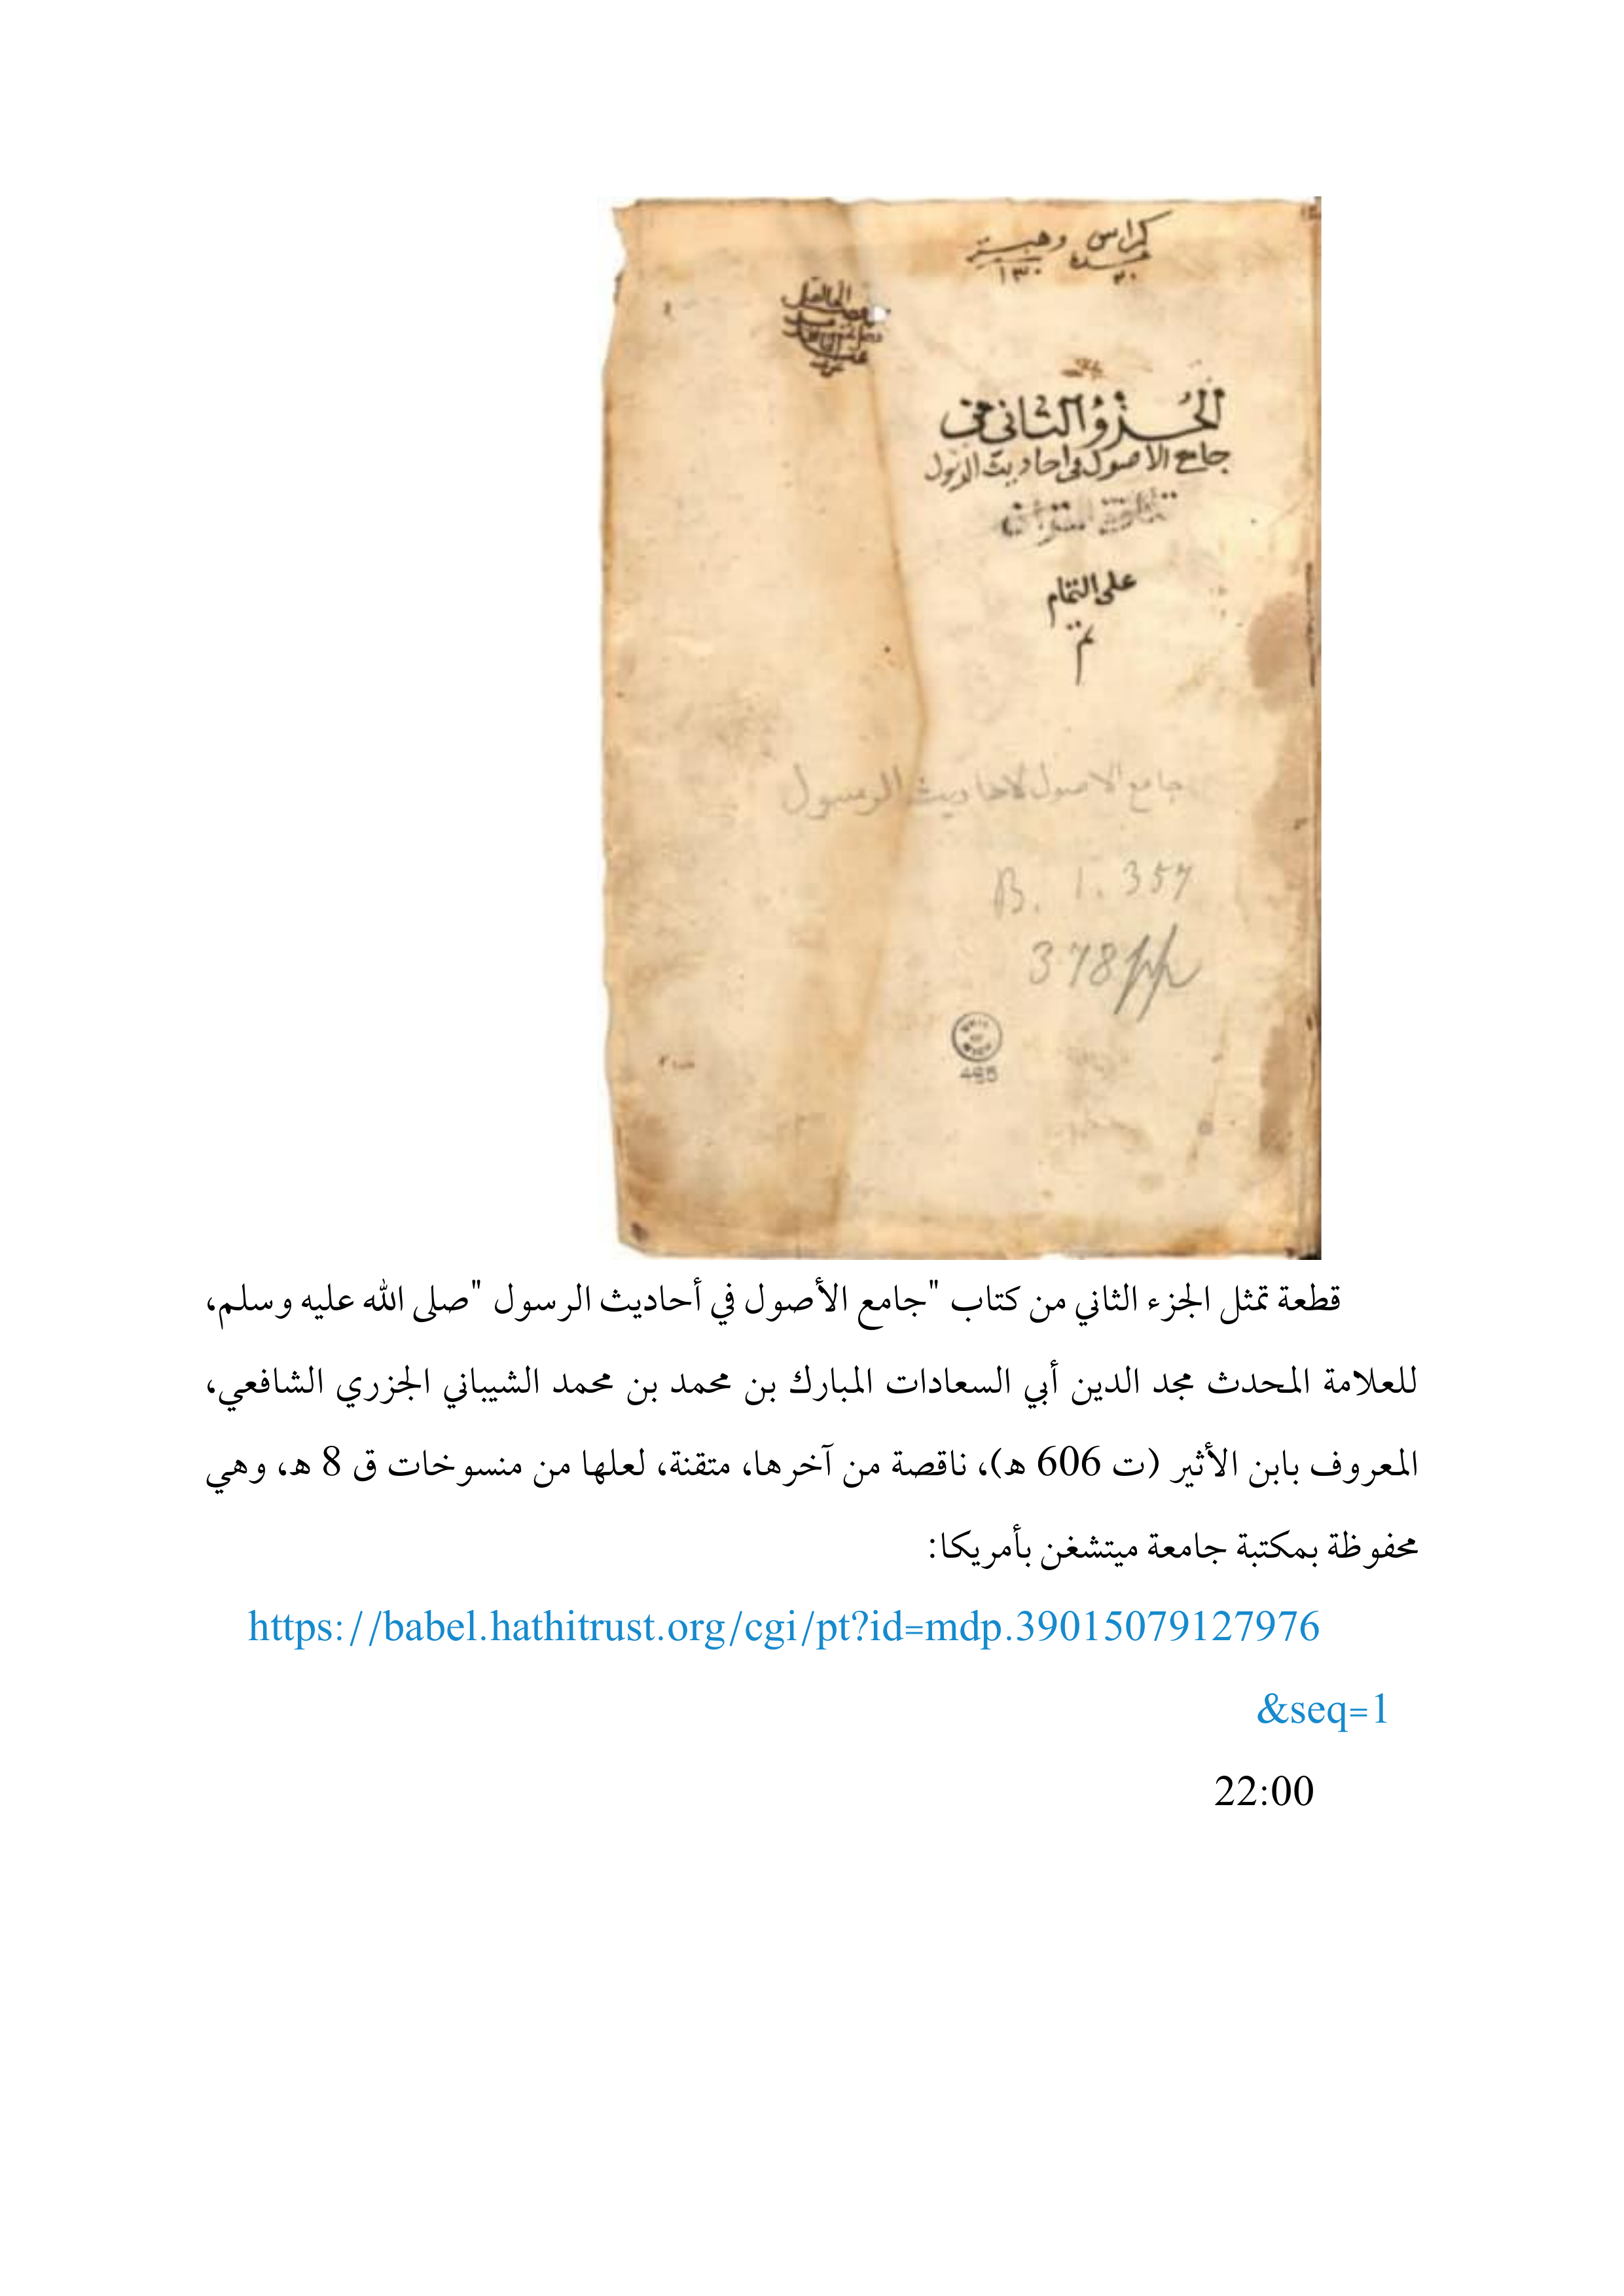 كراس
١٣٠
الجزؤ الثاني من
جامع الاصول في احاديث الرسول
على التمام
تم
جامع الاصول لاحاديث الرسول
B. 1. 357
378 pp
485
قطعة تمثل الجزء الثاني من كتاب "جامع الأصول في أحاديث الرسول "صلى الله عليه وسلم،
للعلامة المحدث مجد الدين أبي السعادات المبارك بن محمد بن محمد الشيباني الجزري الشافعي،
المعروف بابن الأثير (ت 606 هـ)، ناقصة من آخرها، متقنة، لعلها من منسوخات ق 8 هـ، وهي
محفوظة بمكتبة جامعة ميتشغن بأمريكا:
https://babel.hathitrust.org/cgi/pt?id=mdp.39015079127976
&seq=1
22:00